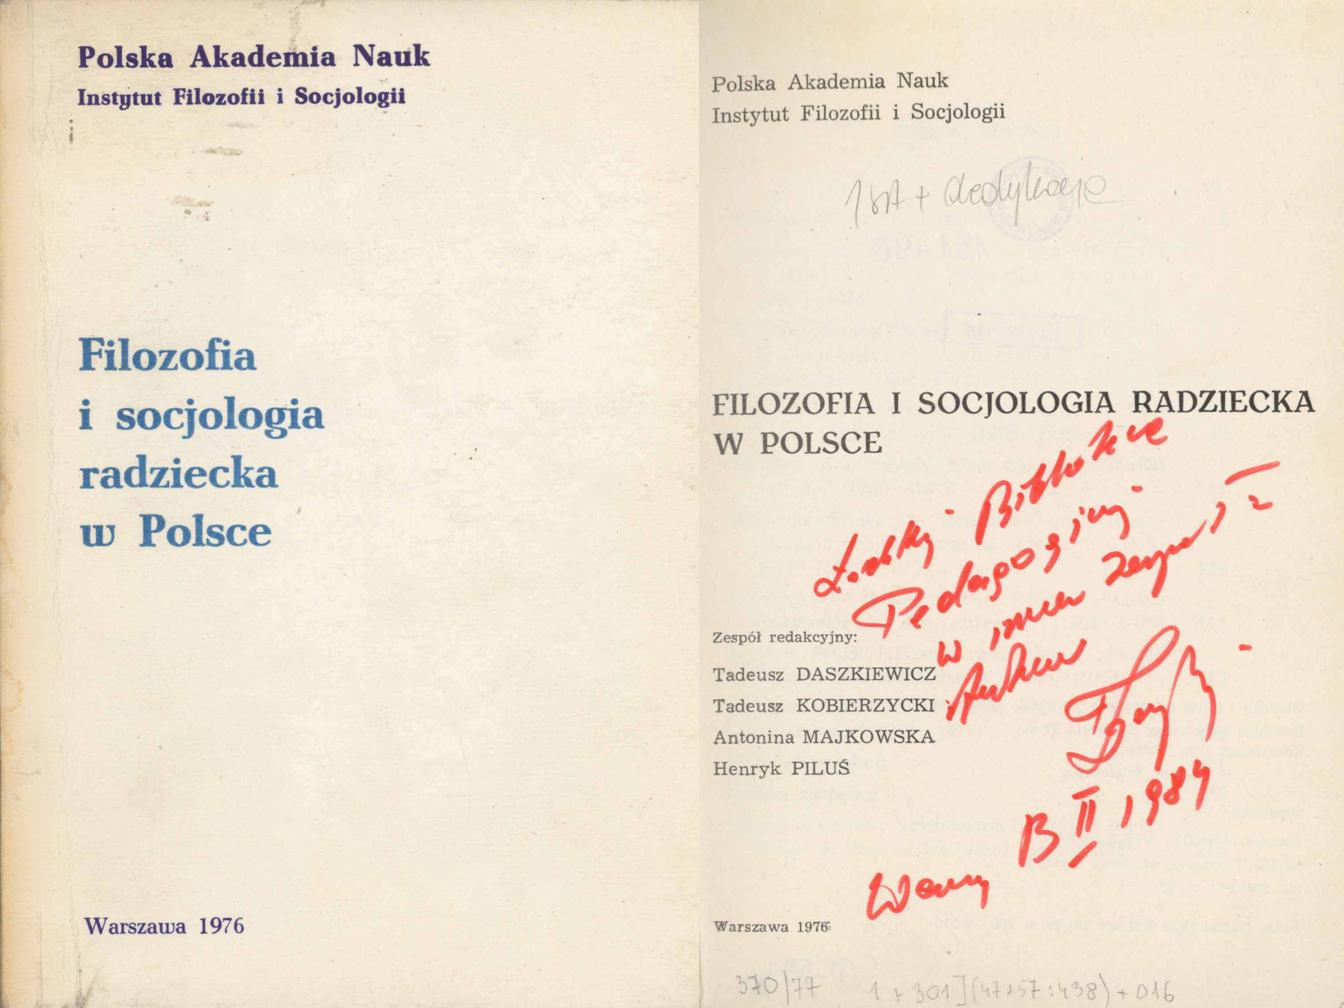 Polska Akademia Nauk
Instytut Filozofii i Socjologii
Filozofia
i socjologia
radziecka
w Polsce
Warszawa 1976
Polska Akademia Nauk
Instytut Filozofii i Socjologii
+ dedykacja
FILOZOFIA I SOCJOLOGIA RADZIECKA
W POLSCE
Bibliotece
Pedagogicznej
w imieniu zespołu
Autorów
Zespół redakcyjny:
Tadeusz DASZKIEWICZ
Tadeusz KOBIERZYCKI
Antonina MAJKOWSKA
Henryk PILUŚ
II 1984
Warszawa 1976
370/77
1 + 301](47+57:438) + 016